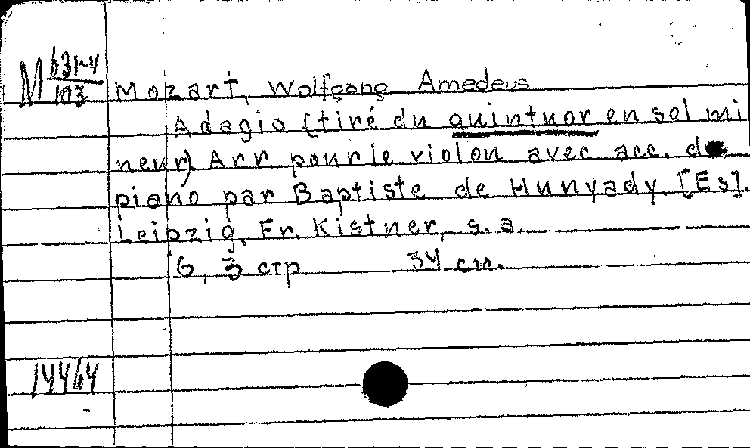 M 631-4
103
Mozart, Wolfgang Amedeus
Adagio (tiré du quintuor en sol mi
neur) Arr pour le violon avec acc. de
piano par Baptiste de Hunyady. [Es].
Leipzig, Fr. Kistner, s. a.
6, 3 стр 34 см.
14464